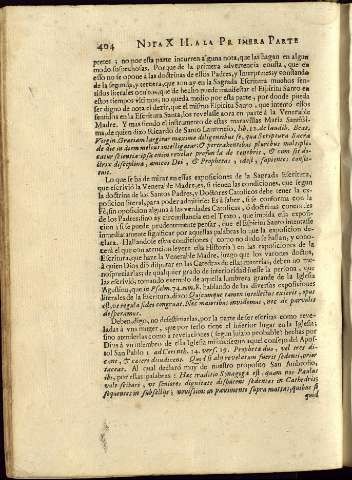 404 NOTA XII. A LA PRIMERA PARTE
pretes; no por esta parte incurren alguna nota, que las hagan en algun
modo sospechosas. Porque de la primera advertencia consta, que en
esso no se opone à las doctrinas de essos Padres, y Interpretes; y constando
de la segunda, y tercera, que aun ay en la Sagrada Escritura muchos sen-
tidos literales ocultos, que de hecho puede manifestar el Espiritu Santo en
estos tiempos vltimos, no queda medio por esta parte, por donde pueda
ser digno de nota el dezir, que el mismo Espiritu Santo, que intentò essos
sentidos en la Escritura Santa, los revelasse aora en parte à la Venerable
Madre. Y mas siendo el instrumento de estas maravillas Maria Santissi-
ma, de quien dixo Ricardo de Santo Laurencio, lib. 12. de laudib. Beat.
Virgin. Gratiam largitur maxime diligentibus se, quâ Scriptura Sacra
de die in diem melius intelligatur: &
tatur scientia: ipsa enim revelat profunda de tenebris, & cum sit di-
scretrix disciplinæ, amicos Dei, & Prophetas, idest, sapientes consti-
tuit.
Lo que se hà de mirar en essas exposiciones de la Sagrada Escritura,
que escriviò la Venerable Madre, es, si tienen las condiciones, que segun
la doctrina de los Santos Padres, y Doctores Catolicos debe tener la ex-
posicion literal, para poder admitirse. Es à saber, si se conforma con la
Fè, sin oposicion alguna à las verdades Catolicas, ò doctrinas comunes
de los Padres: si no ay circunstancia en el Texto, que impida essa exposi-
cion: si se puede prudentemente pensar, que el Espiritu Santo intentasse
inmediatamente significar por aquellas palabras lo que la exposicion de-
clara. Hallandose estas condiciones (como no dudo se hallan, y conocerà
el que con atencion leyere esta Historia) en las exposiciones de la
Escritura, que haze la Venerable Madre, juzgo que los varones doctos,
à quien Dios diò lugar en las Catedras de estas materias, deben no me-
nospreciarlas; de qualquier grado de inferioridad fuesse la persona, que
las escriviò, tomando exemplo de aquella lumbrera grande de la Iglesia
Agustino, que in Psalm. 74. hablando de las diversas exposiciones
literales de la Escritura, dixo: Quicumque tamen intellectus exierit, opus
est, ut regula fidei congruat. Nec maioribus invidemus, nec de parvulis
desperamus.
Deben, digo, no desestimarlas, por la parte de ser escritas como reve-
ladas à vna muger, que por serlo tiene el inferior lugar en la Iglesia;
sino atenderlas como à revelaciones (segun juizio probable) hechas por
Dios à vn miembro de essa Iglesia misma; segun aquel consejo del Apos-
tol San Pablo 1. ad Corinth. 14. vers. 29. Prophetæ duo, vel tres di-
cant, & cæteri dijudicent. Quod si alii revelatum fuerit sedenti, prior
taceat. Al qual declarò muy de nuestro proposito San Ambrosio,
ibi, por estas palabras: Hæc traditio Synagogæ est, quam nos Paulus
vult sectari, vt seniores dignitate disputent sedentes in Cathedris
sequentes in subsellijs; novissimi in pavimento supra mattas; quibus si
quid